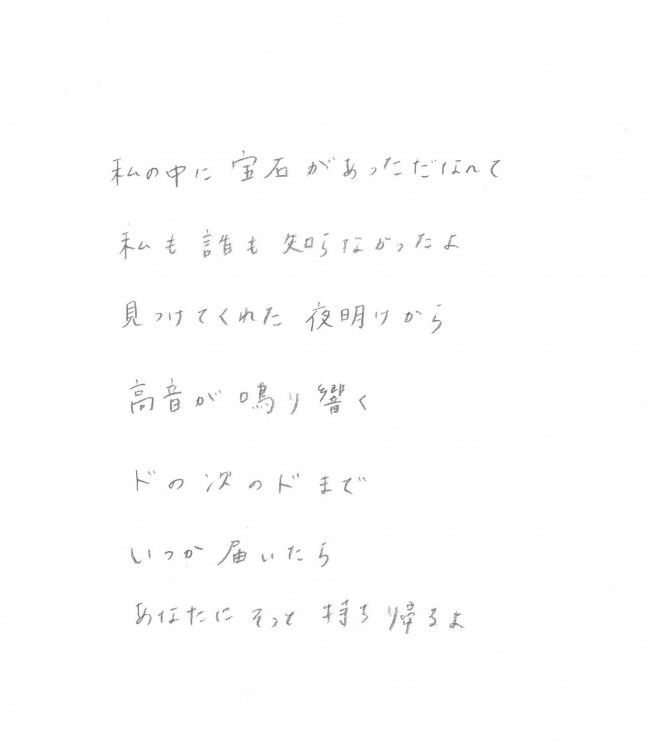 私の中に 宝石があっただなんて
私も 誰も 知らなかったよ
見つけてくれた 夜明けから
高音が 鳴り響く
ドの次のドまで
いつか 届いたら
あなたに そっと 持ち帰るよ